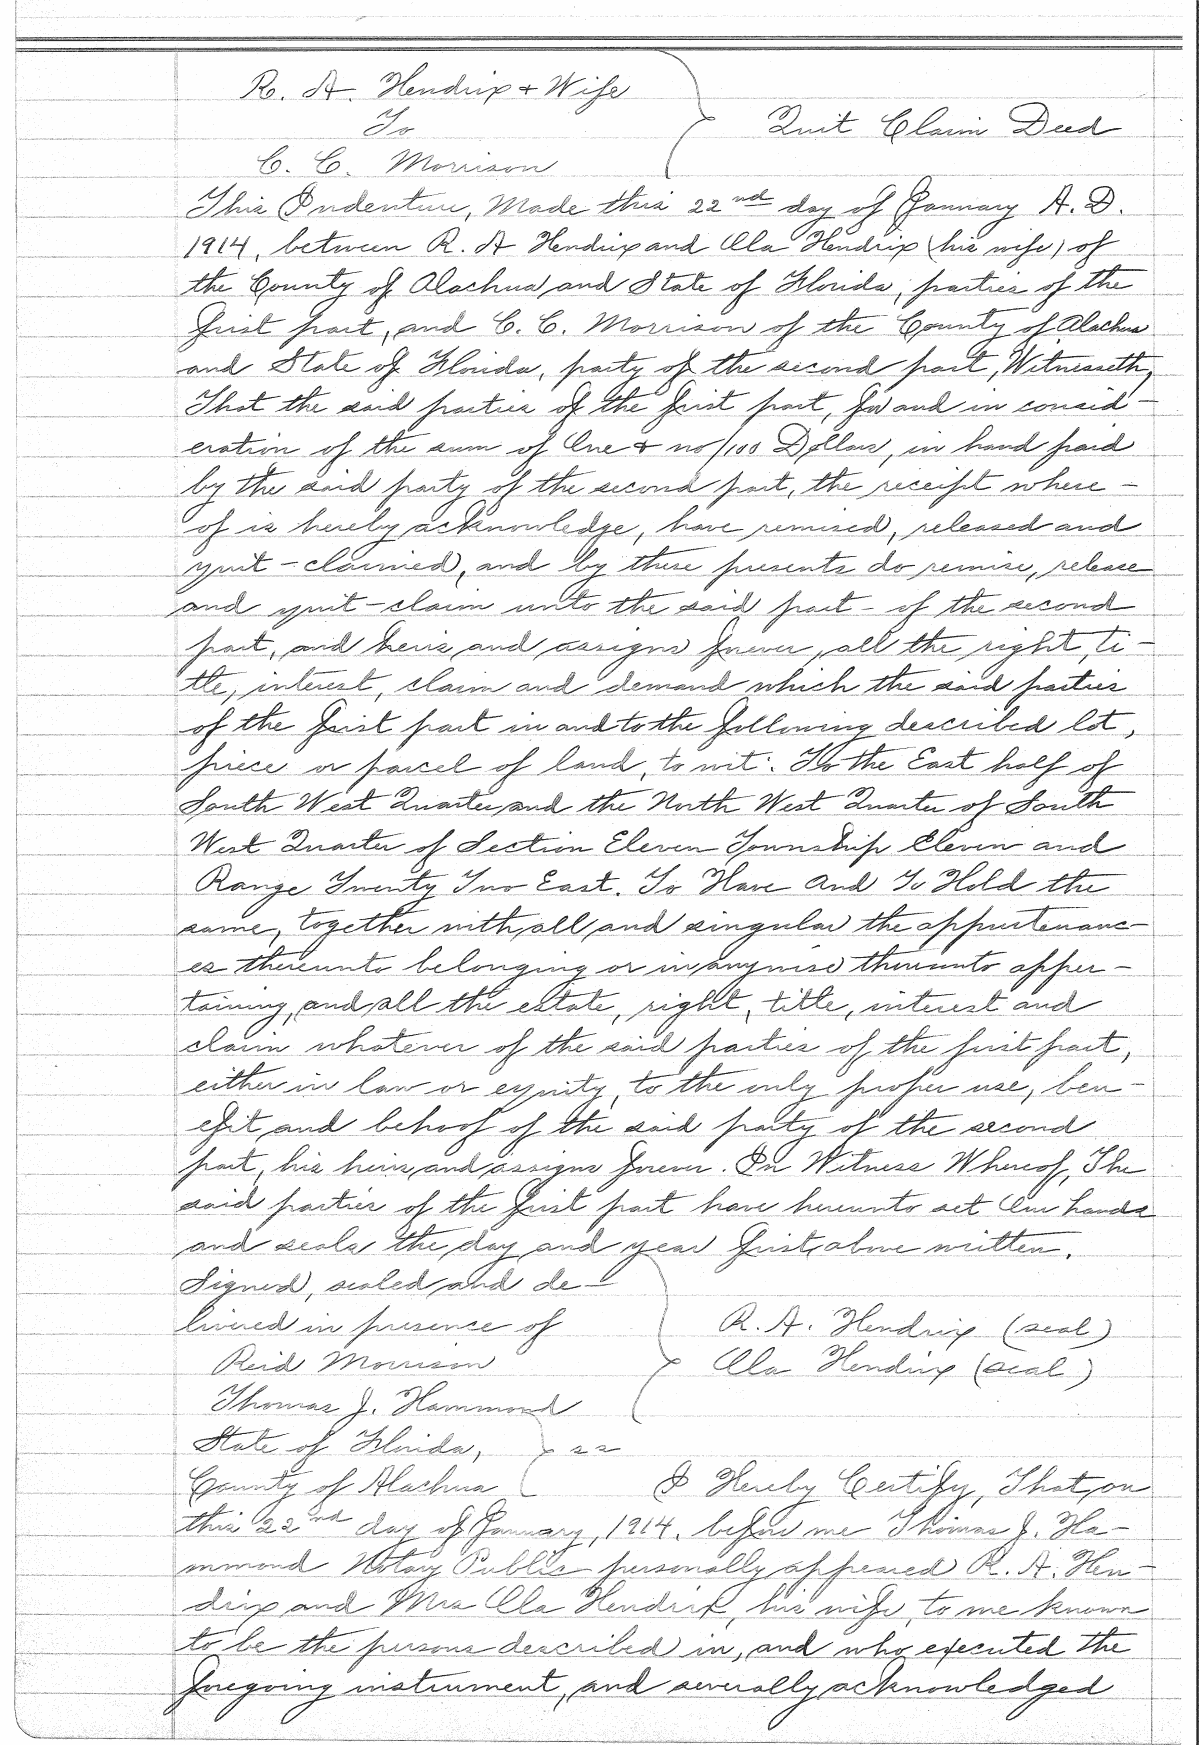 R. A. Hendrix & Wife
To
Quit Claim Deed
C. C. Morrison
This Indenture, Made this 22nd day of January A. D.
1914, between R. A Hendrix and Ola Hendrix (his wife) of
the County of Alachua and State of Florida, parties of the
first part, and C. C. Morrison of the County of Alachua
and State of Florida, party of the second part, Witnesseth,
That the said parties of the first part, for and in consid-
eration of the sum of One & no/100 Dollars, in hand paid
by the said party of the second part, the receipt where-
of is hereby acknowledge, have remised, released and
quit-claimed, and by these presents do remise, release
and quit-claim unto the said part- of the second
part, and heirs and assigns forever, all the right, ti-
tle, interest, claim and demand which the said parties
of the first part in and to the following described lot,
piece or parcel of land, to wit: To the East half of
South West Quarter and the North West Quarter of South
West Quarter of Section Eleven Township Eleven and
Range Twenty Two East. To Have And To Hold the
same, together with all and singular the appurtenanc-
es thereunto belonging or in anywise thereunto apper-
taining, and all the estate, right, title, interest and
claim whatever of the said parties of the first part,
either in law or equity, to the only proper use, ben-
efit and behoof of the said party of the second
part, his heirs and assigns forever. In Witness Whereof, The
said parties of the first part have hereunto set Our hands
and seals the day and year first above written.
Signed, sealed and de-
livered in presence of
R. A. Hendrix (seal)
Reid Morrison
Ola Hendrix (seal)
Thomas J. Hammond
State of Florida, ss
County of Alachua
I Hereby Certify, That on
this 22nd day of January, 1914, before me Thomas J. Ha-
mmond Notary Public personally appeared R. A. Hen-
drix and Mrs Ola Hendrix, his wife, to me known
to be the persons described in, and who executed the
foregoing instrument, and severally acknowledged